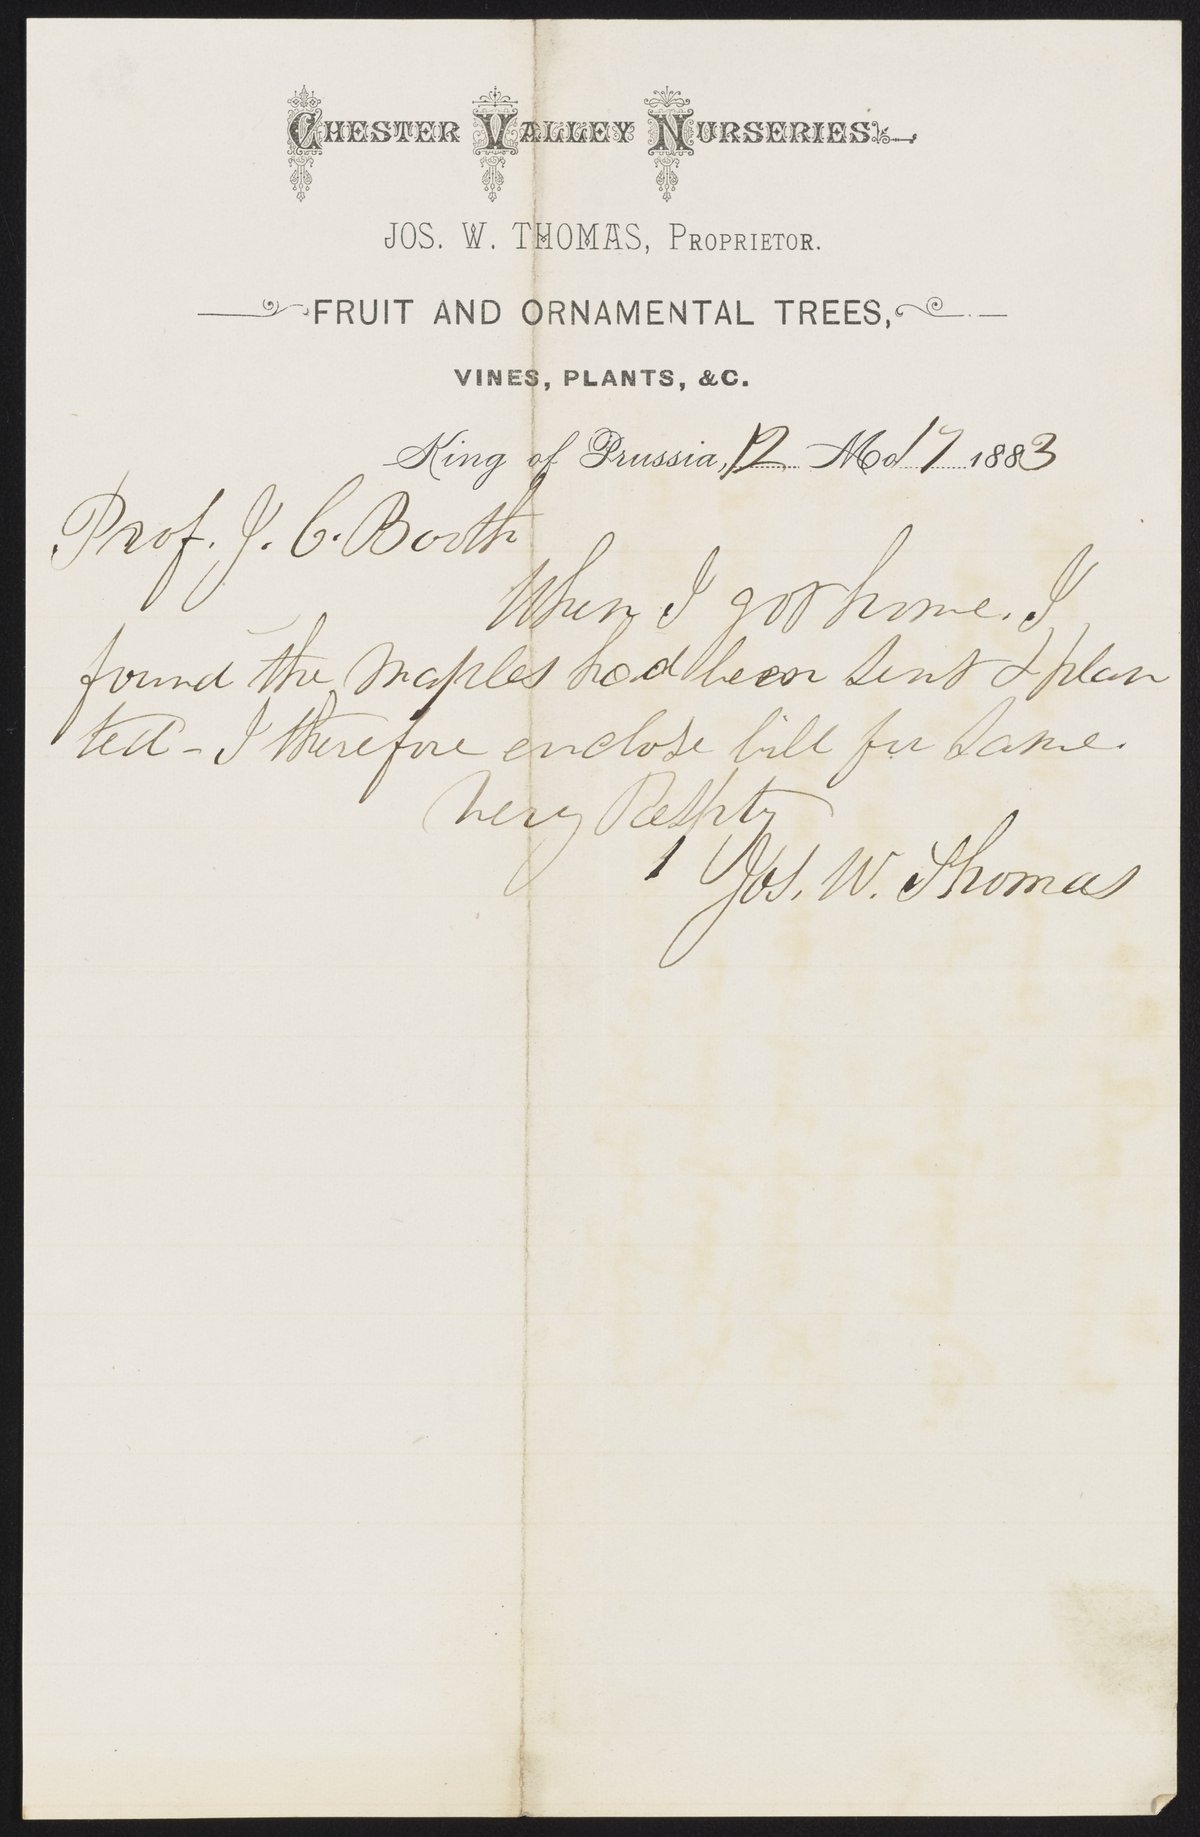 CHESTER VALLEY NURSERIES
JOS. W. THOMAS, PROPRIETOR.
FRUIT AND ORNAMENTAL TREES,
VINES, PLANTS, &C.
King of Prussia, 12 Mo 17 1883
Prof. J. C. Booth
When I got home. I
found the maples had been sent & plan
ted - I therefore enclose bill for same.
Very Respty
Jos. W. Thomas